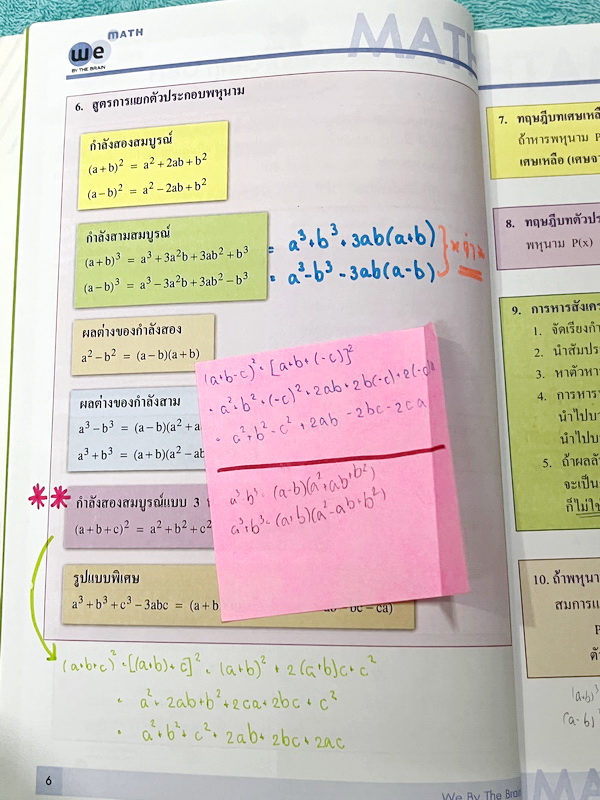 We MATH
BY THE BRAIN
MATH
6. สูตรการแยกตัวประกอบพหุนาม
กำลังสองสมบูรณ์
(a+b)² = a²+2ab+b²
(a−b)² = a²−2ab+b²
กำลังสามสมบูรณ์
(a+b)³ = a³+3a²b+3ab²+b³ = a³+b³+3ab(a+b)
(a−b)³ = a³−3a²b+3ab²−b³ = a³-b³-3ab(a-b)
ผลต่างของกำลังสอง
a²−b² = (a−b)(a+b)
ผลต่างของกำลังสาม
a³−b³ = (a−b)(a²+a
a³+b³ = (a+b)(a²−ab
** กำลังสองสมบูรณ์แบบ 3
(a+b+c)² = a²+b²+c²
รูปแบบพิเศษ
a³+b³+c³−3abc = (a+b
−bc−ca)
(a+b-c)² = [a+b+(-c)]²
= a²+b²+(-c)²+2ab+2b(-c)+2(-c)a
= a²+b²-c²+2ab-2bc-2ca
a³-b³ = (a-b)(a²+ab+b²)
a³+b³ = (a+b)(a²-ab+b²)
(a+b+c)² = [(a+b)+c]² = (a+b)²+2(a+b)c+c²
= a²+2ab+b²+2ca+2bc+c²
= a²+b²+c²+2ab+2bc+2ac
6
7. ทฤษฎีบทเศษเหลื
ถ้าหารพหุนาม P
เศษเหลือ (เศษจา
8. ทฤษฎีบทตัวประ
พหุนาม P(x)
9. การหารสังเคร
1. จัดเรียงกำ
2. นำสัมประ
3. หาตัวหาร
4. การหารา
นำไปบว
นำไปบว
5. ถ้าผลลั
จะเป็น
ก็ไม่ใช่
10. ถ้าพหุนา
สมการแ
P
ตัว
(a+b)³
(a-b)
We By The Brain
MA